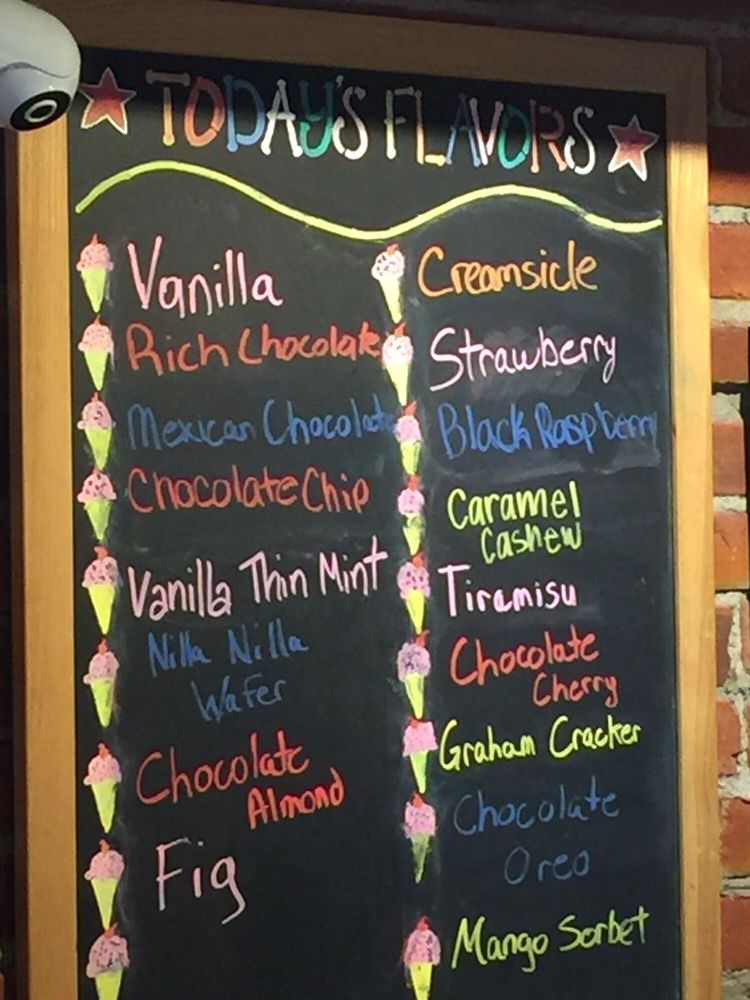 TODAY'S FLAVORS
Vanilla
Rich Chocolate
Mexican Chocolate
Chocolate Chip
Vanilla Thin Mint
Nilla Nilla
Wafer
Chocolate
Almond
Fig
Creamsicle
Strawberry
Black Raspberry
Caramel
Cashew
Tiramisu
Chocolate
Cherry
Graham Cracker
Chocolate
Oreo
Mango Sorbet